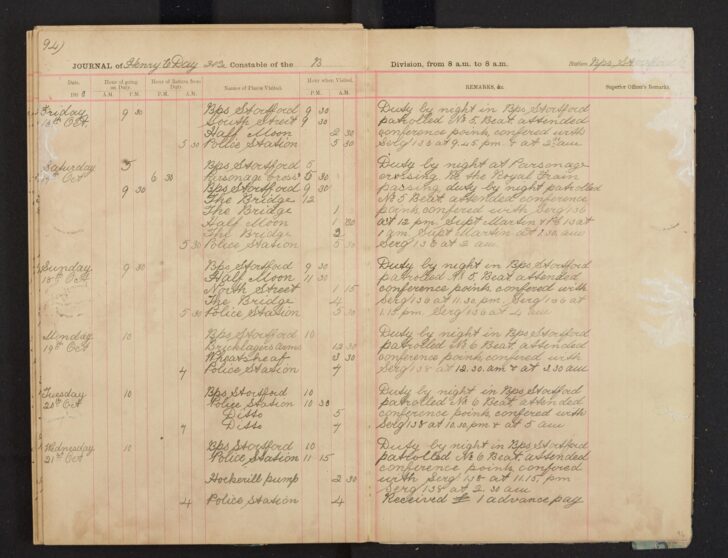 94)
JOURNAL of Henry E Day Constable of the B Division, from 8 a.m. to 8 a.m. Station Bps. Stortford
Date. Hour of going on Duty. Hour of Return from Duty Names of Places Visited. Hour when Visited. REMARKS, &c. Superior Officer's Remarks.
190 A.M. P.M. P.M. A.M. P.M. A.M.
Friday 9 30 Bps Stortford 9 30 Duty by night in Bps Stortford
Oct South Street 9 30 patrolled No 5 Beat attended
Half Moon 2 30 conference point confered with
5 30 Police Station 5 30 Serg 136 at 9.45 pm. & at 2 am
Saturday 5 Bps Stortford 5 Duty by night at Parsonage
Oct 6 30 Parsonage Cross 5 30 crossing. Re the Royal Train
9 30 Bps Stortford 9 30 passing duty by night patrolled
The Bridge 12 No 5 Beat attended conference
The Bridge 1 point confered with Serg 136
Half Moon 1 at 12 pm. Supt Martin & at
The Bridge 2 1 am. Supt Martin at 1.30 am
5 30 Police Station 5 30 Serg 136 at 2 am
Sunday 9 30 Bps Stortford 9 30 Duty by night in Bps Stortford
18th Oct Half Moon 11 30 patrolled No 5 Beat attended
North Street 1 15 conference point confered with
The Bridge 4 Serg 136 at 11.30 pm, Serg 136 at
5 30 Police Station 5 30 1.15 pm, Serg 136 at 4 am
Monday 10 Bps Stortford 10 Duty by night in Bps Stortford
19th Oct Bricklayers Arms 12 30 patrolled No 6 Beat, attended
Wheatsheaf 3 30 conference point, confered with
4 Police Station 4 Serg 138 at 12.30 am & at 3.30 am
Tuesday 10 Bps Stortford 10 Duty by night in Bps Stortford
20th Oct Police Station 10 30 patrolled No 6 Beat attended
Ditto 5 conference point confered with
Ditto 4 Serg 138 at 10.30 pm & at 5 am
Wednesday 10 Bps Stortford 10 Duty by night in Bps Stortford
21st Oct Police Station 11 15 patrolled No 6 Beat, attended
conference point, confered
Hockerill pump 2 30 with Serg 138 at 11.15, pm
Serg 138 at 2.30 am
4 Police Station 4 Received £1 advance pay